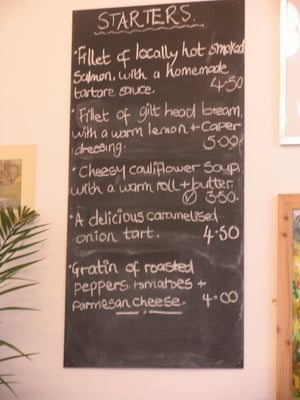 STARTERS.
• Fillet of locally hot smoked
Salmon, with a homemade
tartare sauce. 4.50
• Fillet of gilt head bream,
with a warm lemon + caper
dressing. 5.00
• Cheesy cauliflower soup,
with a warm roll + butter.
Ⓥ 3.50.
• A delicious caramelised
onion tart. 4.50
• Gratin of roasted
peppers, tomatoes +
parmesan cheese. 4.00